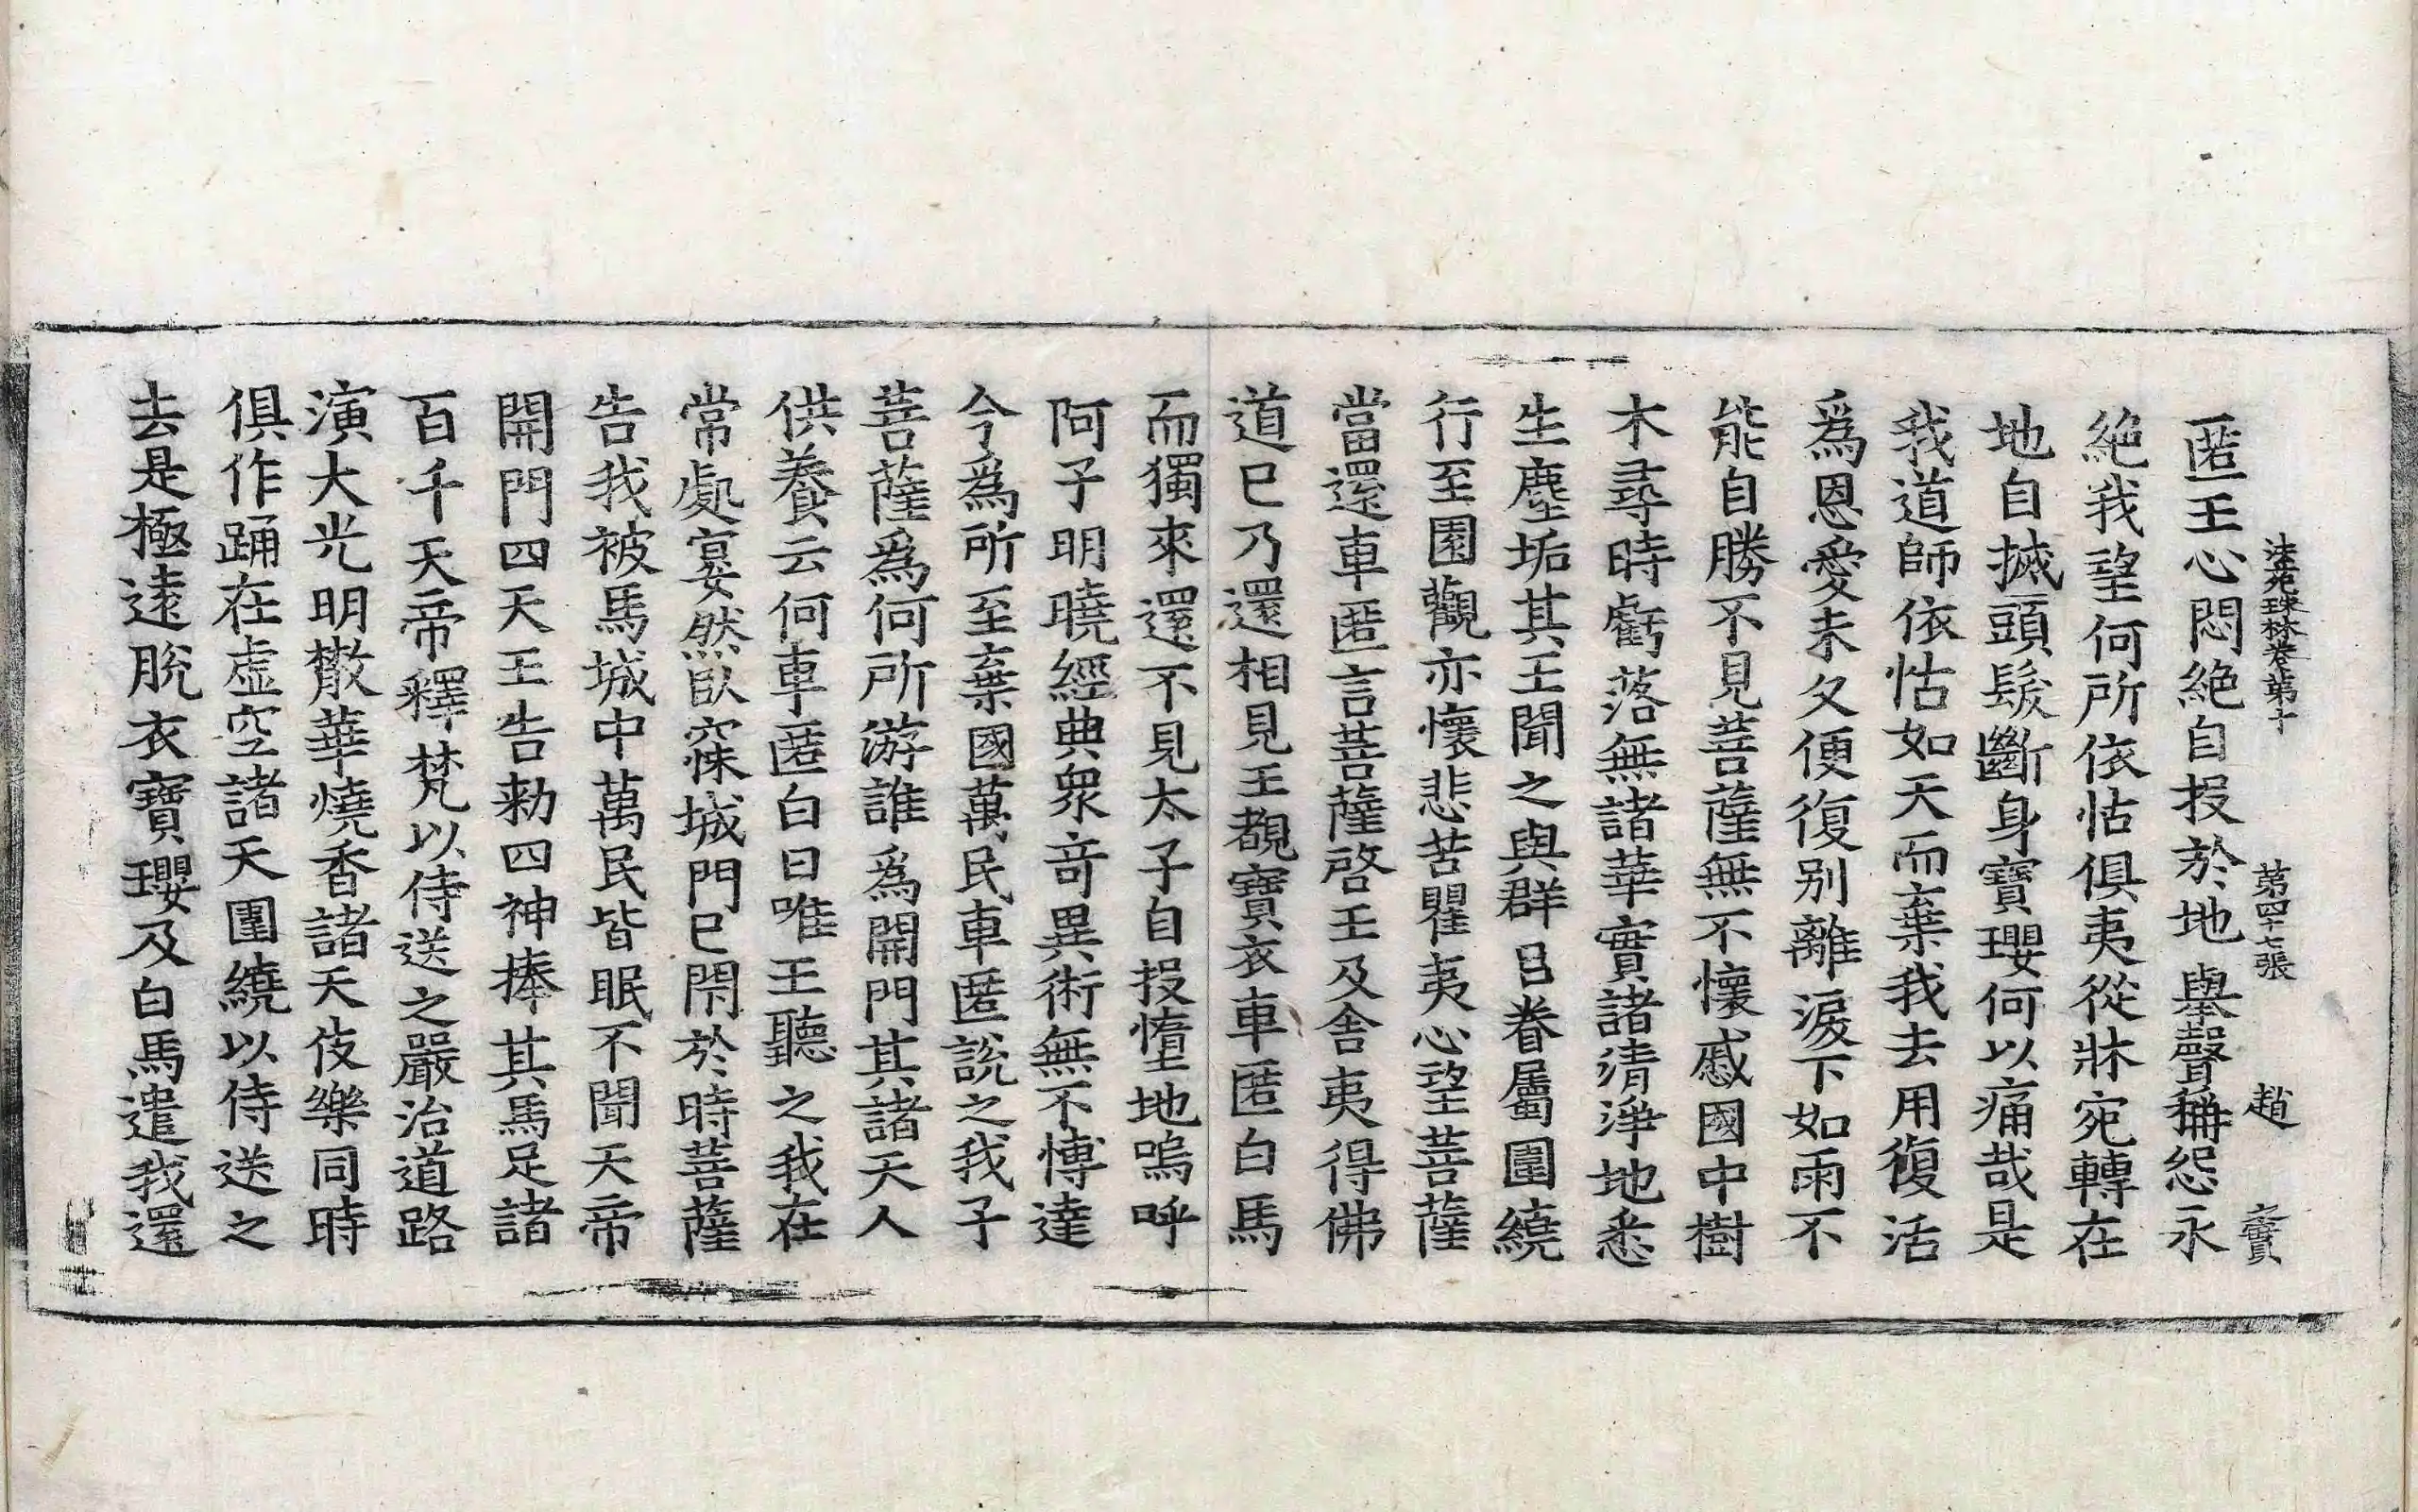 法苑珠林卷第十　第四十七張　趙　寶
匿王心悶絶自投於地舉聲稱怨永
絶我望何所依怙俱夷從牀宛轉在
地自搣頭髮斷身寶瓔何以痛哉是
我道師依怙如天而棄我去用復活
爲恩愛未久便復別離淚下如雨不
能自勝不見菩薩無不懷慼國中樹
木尋時虧落無諸華實諸清淨地悉
生塵垢其王聞之與群臣眷屬圍繞
行至園觀亦懷悲苦瞿夷心望菩薩
當還車匿言菩薩啓王及舍夷得佛
道已乃還相見王覩寶衣車匿白馬
而獨來還不見太子自投墮地嗚呼
阿子明曉經典衆奇異術無不博達
今爲所至棄國萬民車匿說之我子
菩薩爲何所游誰爲開門其諸天人
供養云何車匿白曰唯王聽之我在
常處宴然臥寐城門已閉於時菩薩
告我被馬城中萬民皆眠不聞天帝
開門四天王告勑四神捧其馬足諸
百千天帝釋梵以侍送之嚴治道路
演大光明散華燒香諸天伎樂同時
俱作踊在虛空諸天圍繞以侍送之
去是極遠脫衣寶瓔及白馬遣我還